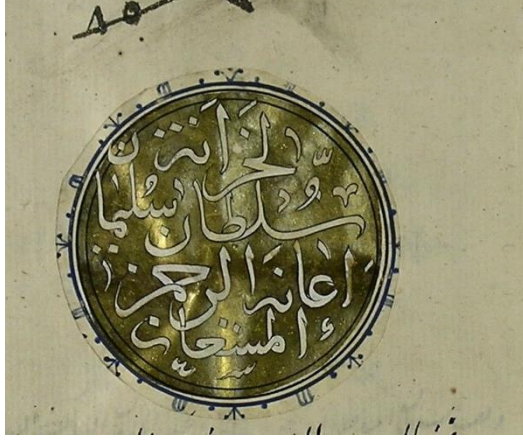 لخزانة
سلطان سليمان
اعانه الرحمن
المستعان